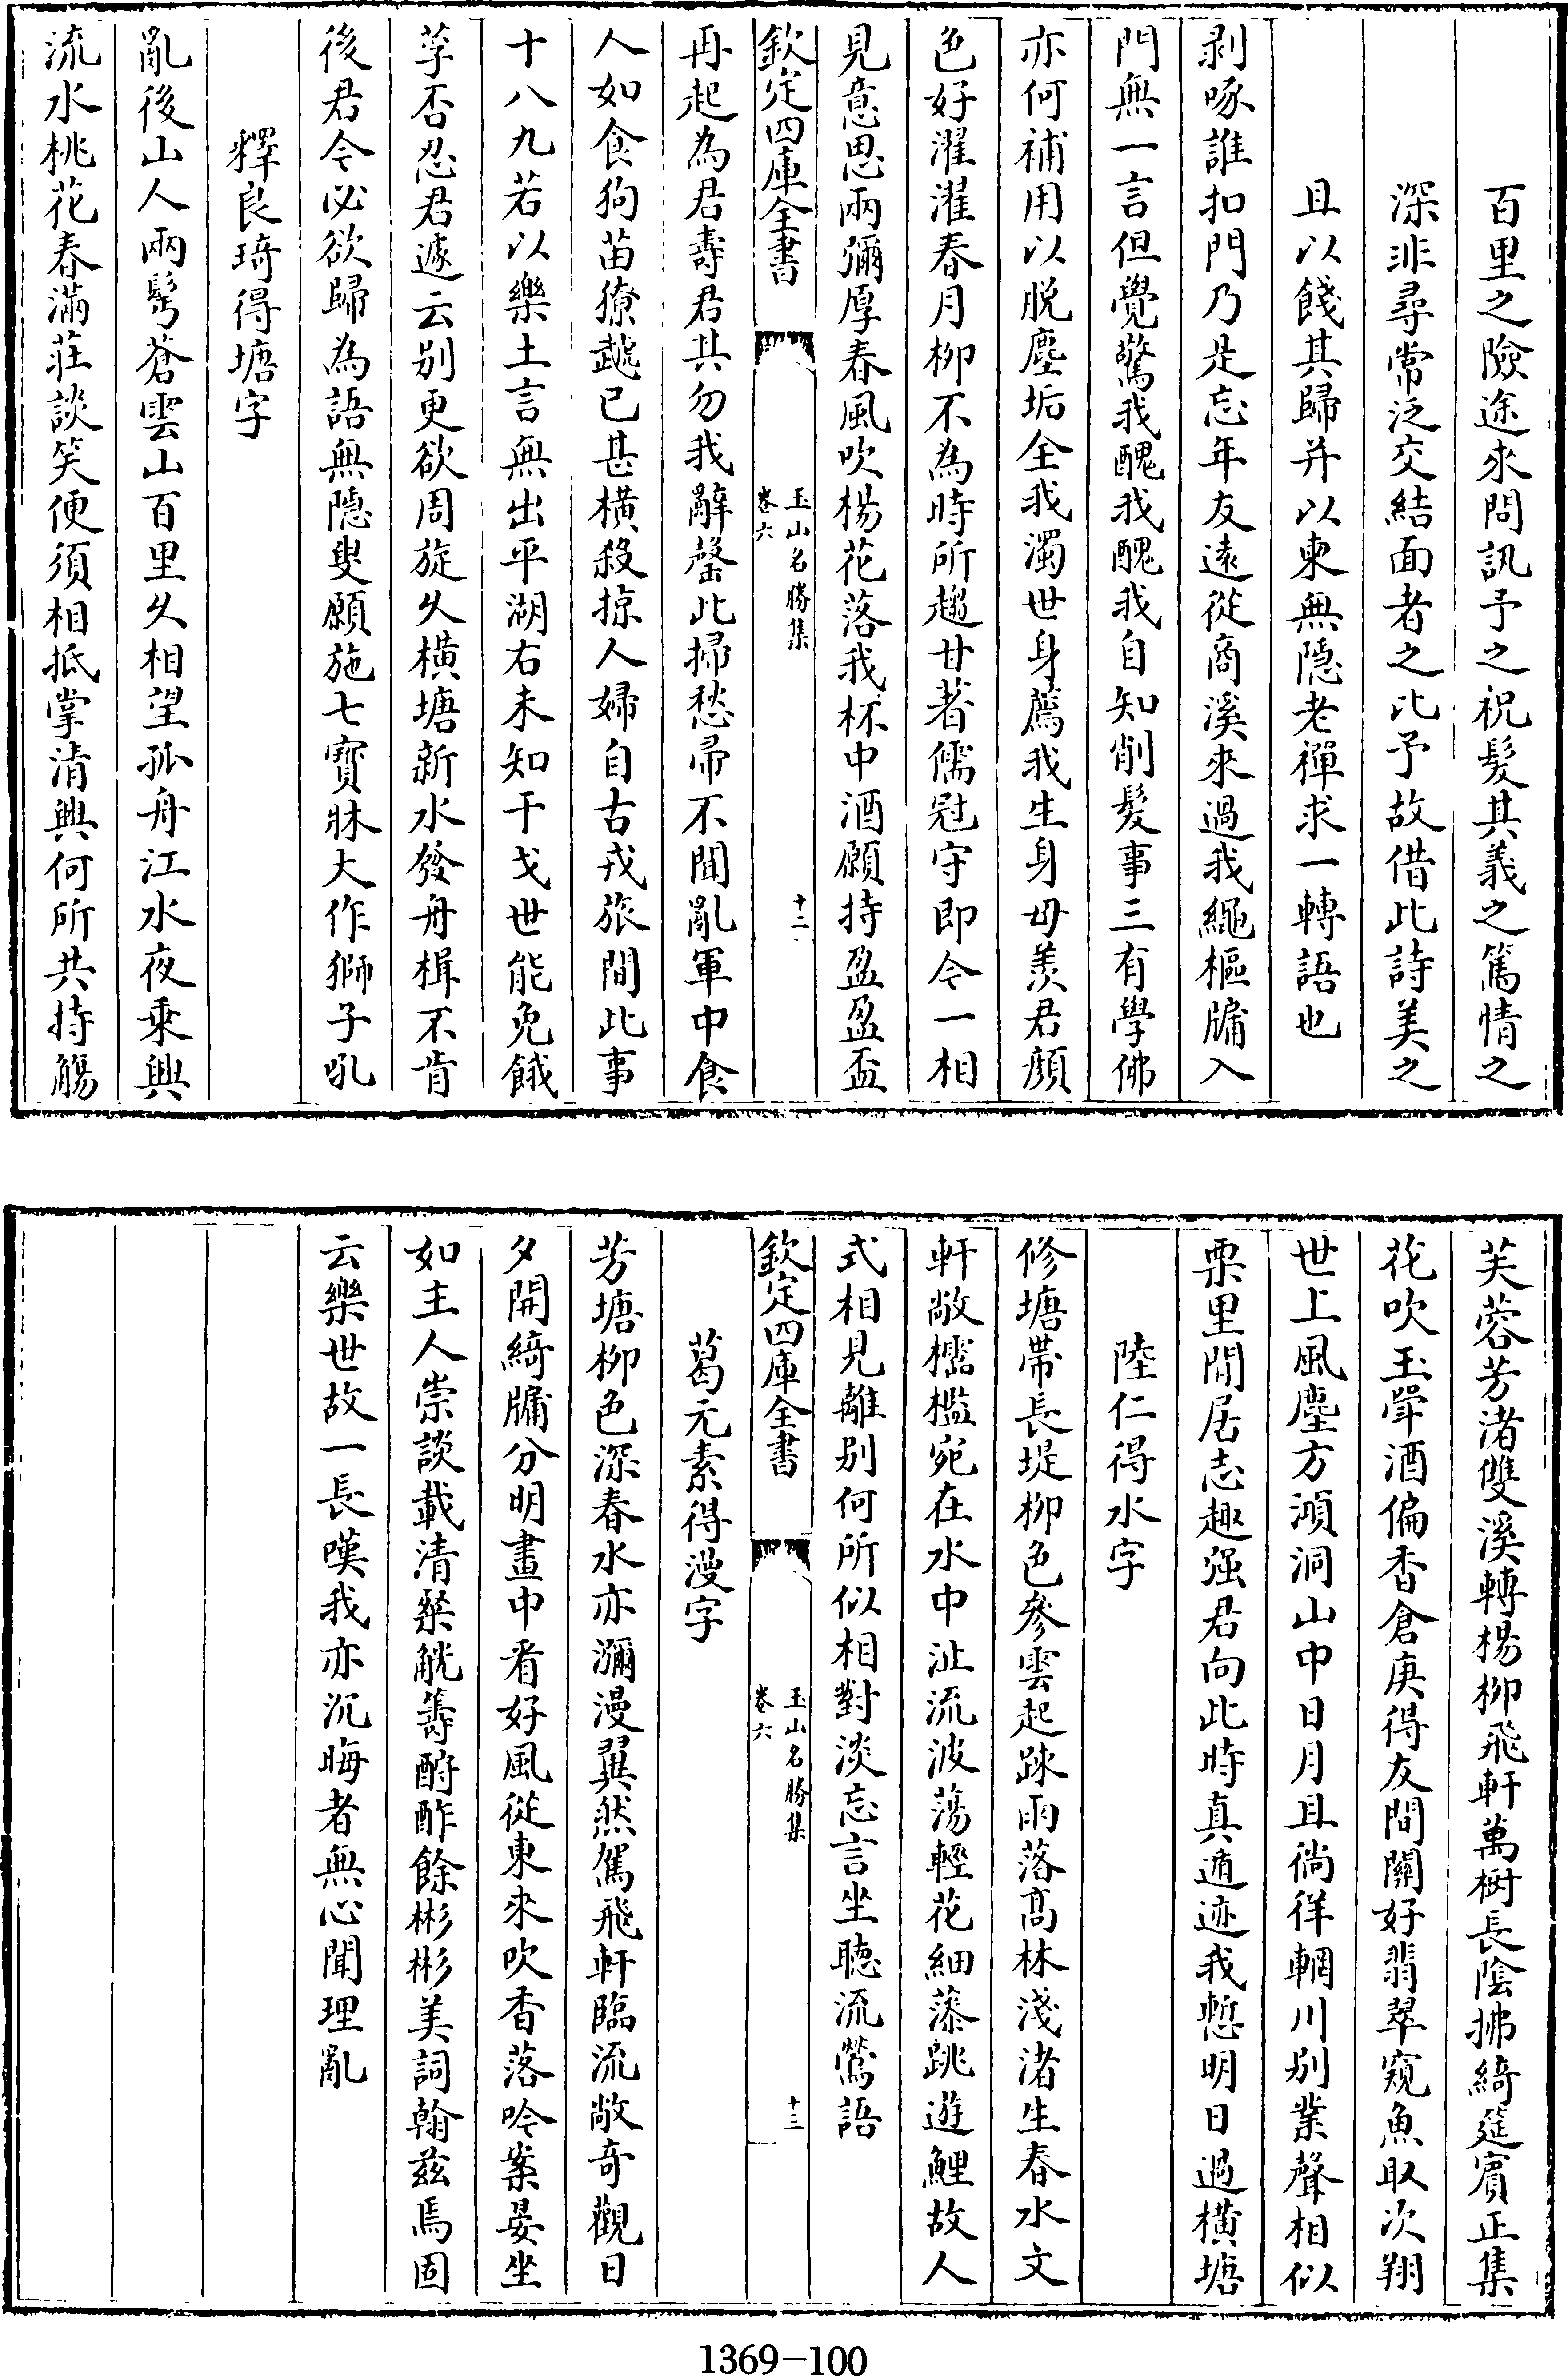 百里之險途來問訊予之祝髮其義之篤情之
深非尋常泛交結面者之比予故借此詩美之
且以餞其歸并以柬無隱老禪求一轉語也
剥啄誰扣門乃是忘年友遠從商溪來過我繩樞牖入
門無一言但覺驚我醜我醜我自知削髮事三有學佛
亦何補用以脱塵垢全我濁世身薦我生身母羨君顔
色好濯濯春月柳不為時所趨甘著儒冠守即今一相
見意思兩彌厚春風吹楊花落我杯中酒願持盈盈盃
欽定四庫全書
玉山名勝集
卷六
十二
再起為君壽君其勿我辭罄此掃愁帚不聞亂軍中食
人如食狗苗獠虣已甚横殺掠人婦自古戎旅間此事
十八九若以樂土言無出平湖右未知干戈世能免餓
莩否忍君遽云别更欲周旋久横塘新水發舟楫不肯
後君今必欲歸為語無隱叟願施七寳牀大作獅子吼
釋良琦得塘字
亂後山人兩髩蒼雲山百里久相望孤舟江水夜乗興
流水桃花春滿莊談笑便須相抵掌清興何所共持觴
芙蓉芳渚雙溪轉楊柳飛軒萬樹長陰拂綺筵賓正集
花吹玉斝酒偏香倉庚得友間關好翡翠窺魚取次翔
世上風塵方澒洞山中日月且徜徉輞川别業聲相似
栗里閒居志趣强君向此時真遁迹我慙明日過横塘
陸仁得水字
修塘帶長堤柳色參雲起踈雨落髙林淺渚生春水文
軒敞櫺檻宛在水中沚流波蕩輕花細藻跳遊鯉故人
式相見離别何所似相對淡忘言坐聽流鶯語
欽定四庫全書
玉山名勝集
卷六
十三
葛元素得漫字
芳塘柳色深春水亦瀰漫翼然駕飛軒臨流敞奇觀日
夕開綺牖分明畫中看好風從東來吹香落吟案晏坐
如主人崇談載清粲觥籌酧酢餘彬彬美詞翰兹焉固
云樂世故一長嘆我亦沉晦者無心聞理亂
1369-100